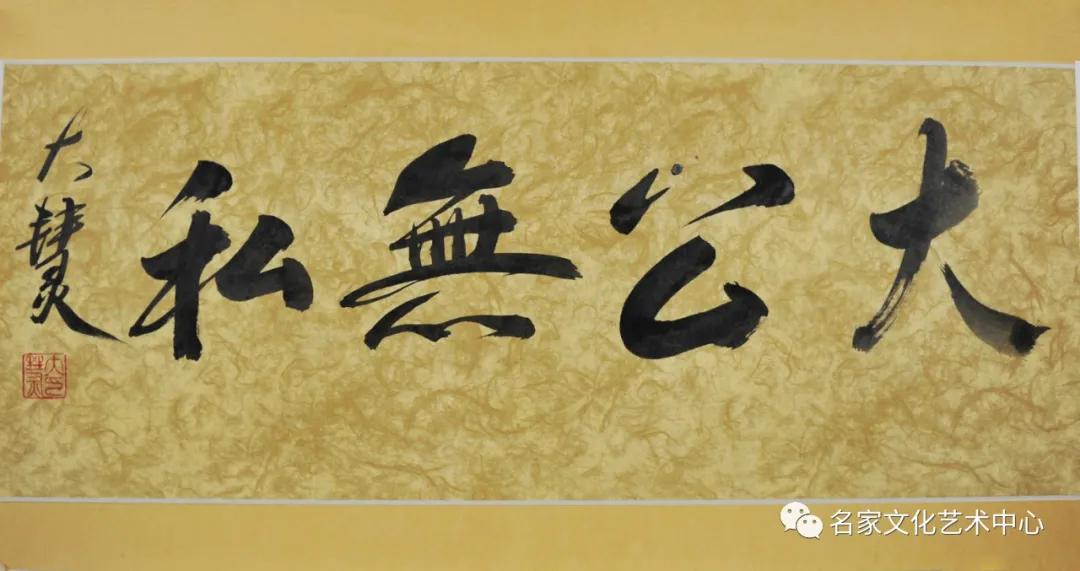 大公無私
大慧
名家文化艺术中心